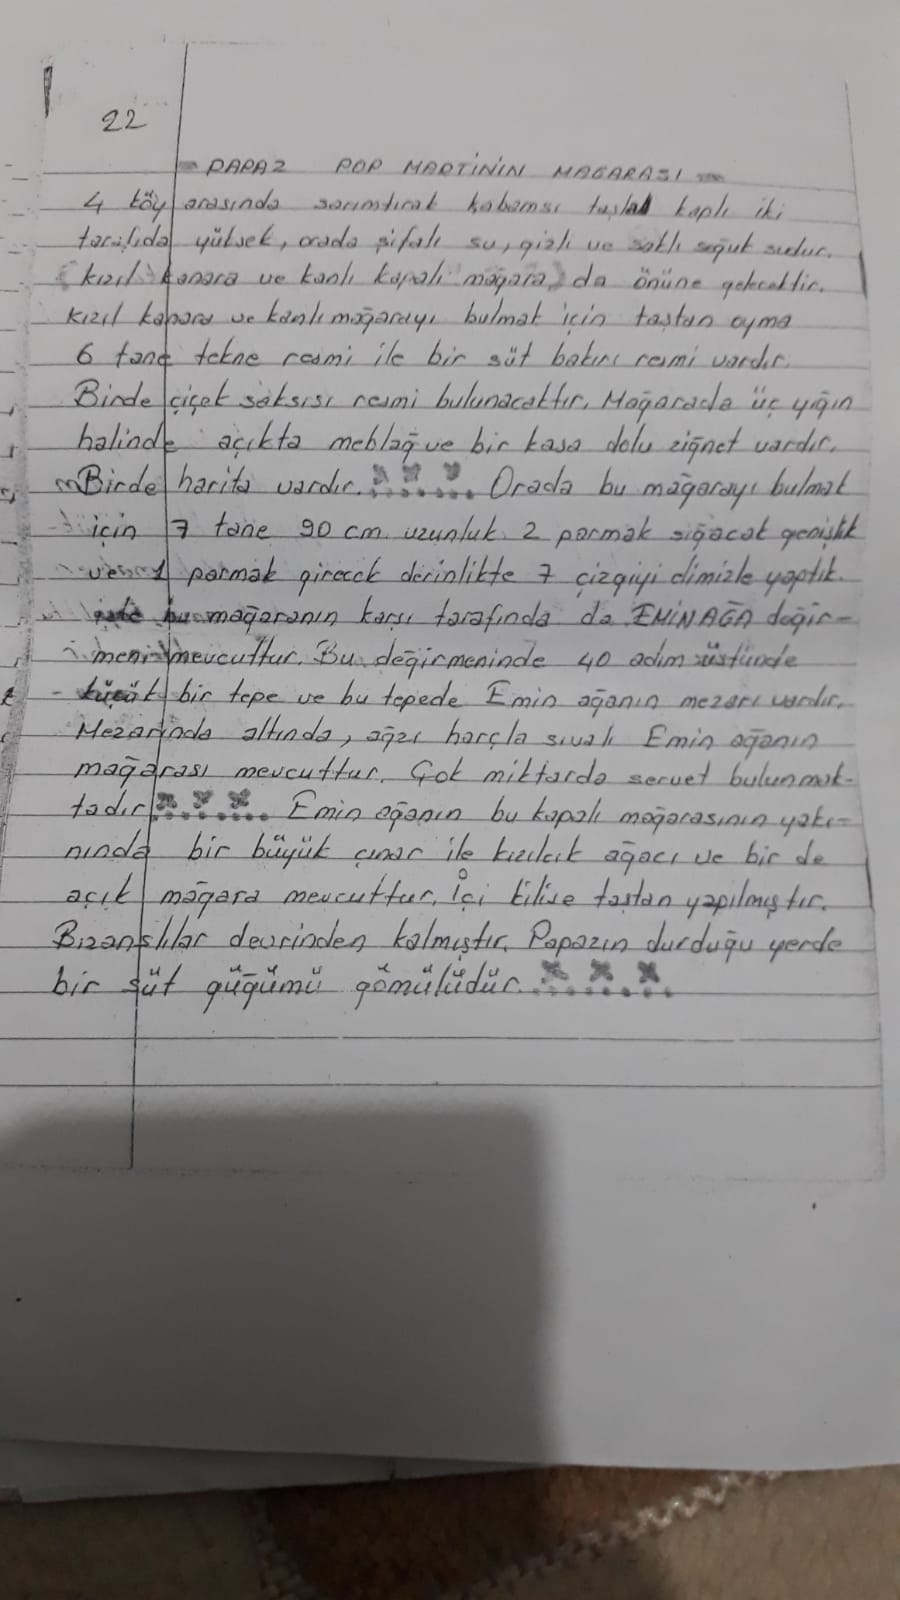 22
PAPAZ POP MARTİNİN MAGARASI
4 köy arasında sarımtırak kabamsı taşlal kaplı iki
tarafıda yüksek, orada şifalı su, gizli ve saklı soğuk sudur.
(kızıl kanara ve kanlı kapalı mağara) da önüne gelecektir.
kızıl kanara ve kanlı mağarayı bulmak için taştan oyma
6 tane tekne resmi ile bir süt bakırı resmi vardır.
Birde çiçek saksısı resmi bulunacaktır. Mağarada üç yığın
halinde açıkta meblağ ve bir kasa dolu ziğnet vardır.
Birde harita vardır. Orada bu mağarayı bulmak
için 7 tane 90 cm. uzunluk 2 parmak sığacak genişlik
ve 1 parmak girecek derinlikte 7 çizgiyi elimizle yaptık.
işte bu mağaranın karşı tarafında da EMİNAĞA değir-
meni mevcuttur. Bu değirmeninde 40 adım üstünde
küçük bir tepe ve bu tepede Emin ağanın mezarı vardır.
Mezarında altında, ağzı harçla sıvalı Emin ağanın
mağarası mevcuttur. Çok miktarda servet bulunmak-
tadır. Emin ağanın bu kapalı mağarasının yakı-
nında bir büyük çınar ile kızılcık ağacı ve bir de
açık mağara mevcuttur. İçi kilise taştan yapılmıştır.
Bizanslılar devrinden kalmıştır. Papazın durduğu yerde
bir süt güğümü gömülüdür.